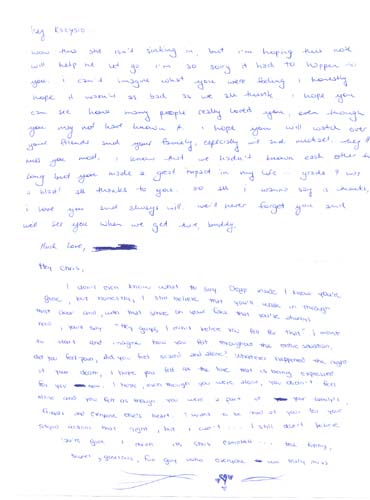 Hey
now this she isn't sinking in, but i'm hoping this note
will help me let go i'm so sorry it had to happen to
you. i can't imagine what you were feeling i honestly
hope it wasn't as bad as we all think. i hope you
can see how many people really loved you, even though
you may not have known it. i hope you will watch over
your friends and your family, especially
miss you most. i know that we hadn't known each other
long but you made a great impact in my life - grade 9 was
a blast! all thanks to you. so all i wanna say is thanks,
i love you and always will. we'll never forget you and
we'll see you when we get there, buddy.
Much Love,
Hey Chris,
I don't even know what to say. Deep inside I know you're
gone, but honestly, I still believe that you'll walk in through
that door and, with that smile on your face that you're always
, you'll say "Hey guys, I can't believe you fell for that" I
to start and imagine how you felt throughout the entire situation,
did you feel pain, did you feel scared and alone? Whatever happened the night
of your death, I hope you felt all the love that is being expressed
for you now. I hope, even though you were alone, you didn't feel
alone and you felt as though you were a part of your family's,
friends and everyone else's heart. I want to be mad at you for your
stupid actions that night, but I can't... I still don't believe
you're gone. I mean its Chris ... the funny,
sweet, generous, fun guy who everyone will really miss